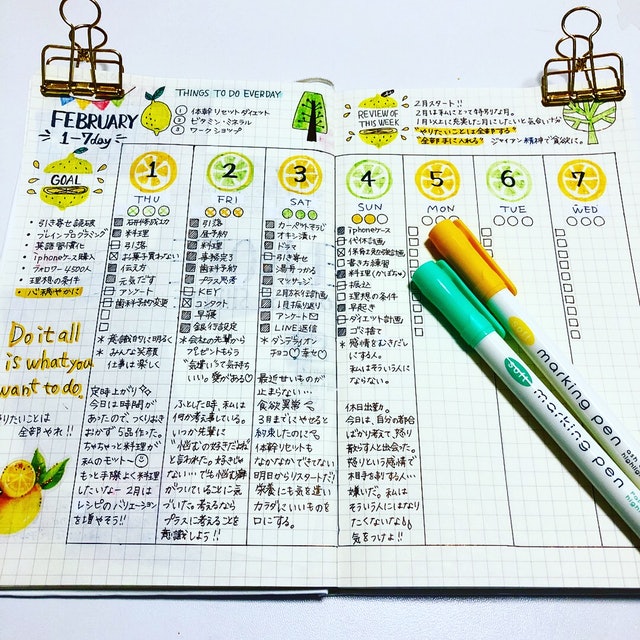 THINGS TO DO EVERDAY
FEBRUARY
1-7day
① 体幹リセットダイエット
② ビタミン・ミネラル
③ ワークショップ
REVIEW OF
THIS WEEK
2月スタート!!
2月は私にとって特別な月。
1月以上に充実した月にしたいと気合い十分
"やりたいことは全部する"
"全部手に入れる" ジャイアン精神で貪欲に。
GOAL
・引き寄せ読破
・ブレインプログラミング
・英語習慣化
・iphoneケース購入
・フォロワー4500人
・理想の条件
・心穏やかに
Do it all
is what you
want to do.
やりたいことは
全部やれ!!
1
THU
料理
引落
お菓子買わない
伝え方
元気だす
アンケート
歯科予約変更
* 意識的に明るく
* みんな笑顔
仕事は楽しく
定時上がり
今日は時間が
あったので、つくりおき
おかず5品作った。
ちゃちゃっと料理が
私のモットー
もっと手際よく料理
したいなー 2月は
レシピのバリエーション
を増やそう!!
2
FRI
引落
昼予約
料理
事務完了
歯科予約
プラス思考
KEY
コンタクト
早寝
銀行設定
* 会社の先輩から
プレゼントもらう
"気遣いって気持ち
いい。愛がある♡
ふとした時、私は
何か考事している。
いつか先輩に
"悩むの好きだよね"
と言われた。好きじゃ
ない…でも悩む癖
がついていることに気
づいた。考えるなら
プラスに考えることを
意識しよう!!
3
SAT
カーペットそうじ
オキシ漬け
ドラマ
引き寄せ
湯骨つかる
マッサージ
2月方針計画
1月振り返り
アンケート
LINE返信
* ダンデライオン
チョコ♡幸せ♡
最近せいものが
止まらない…
食欲異常
3月までにやせると
約束したのに
体幹リセットも
なかなかできてない
明日からリスタートだ!
栄養にも気を遣い
カラダにいいものを
口にする。
4
SUN
iphoneケース
行体計画
保育士勉強計画
書き方練習
料理(かぼちゃ)
振込
理想の条件
早起き
ダイエット計画
ゴミ捨て
* 感情をむきだし
にする人。
私はそういう人に
ならない。
休日出勤。
今日は、自分の都合
ばかり考えて、怒り
散らす人と出会った。
怒りという感情で
相手を制する人…
嫌いだ。私は
そういう人にはなり
たくないな
気をつけよ!!
5
MON
6
TUE
7
WED
soft
marking pen
marking pen